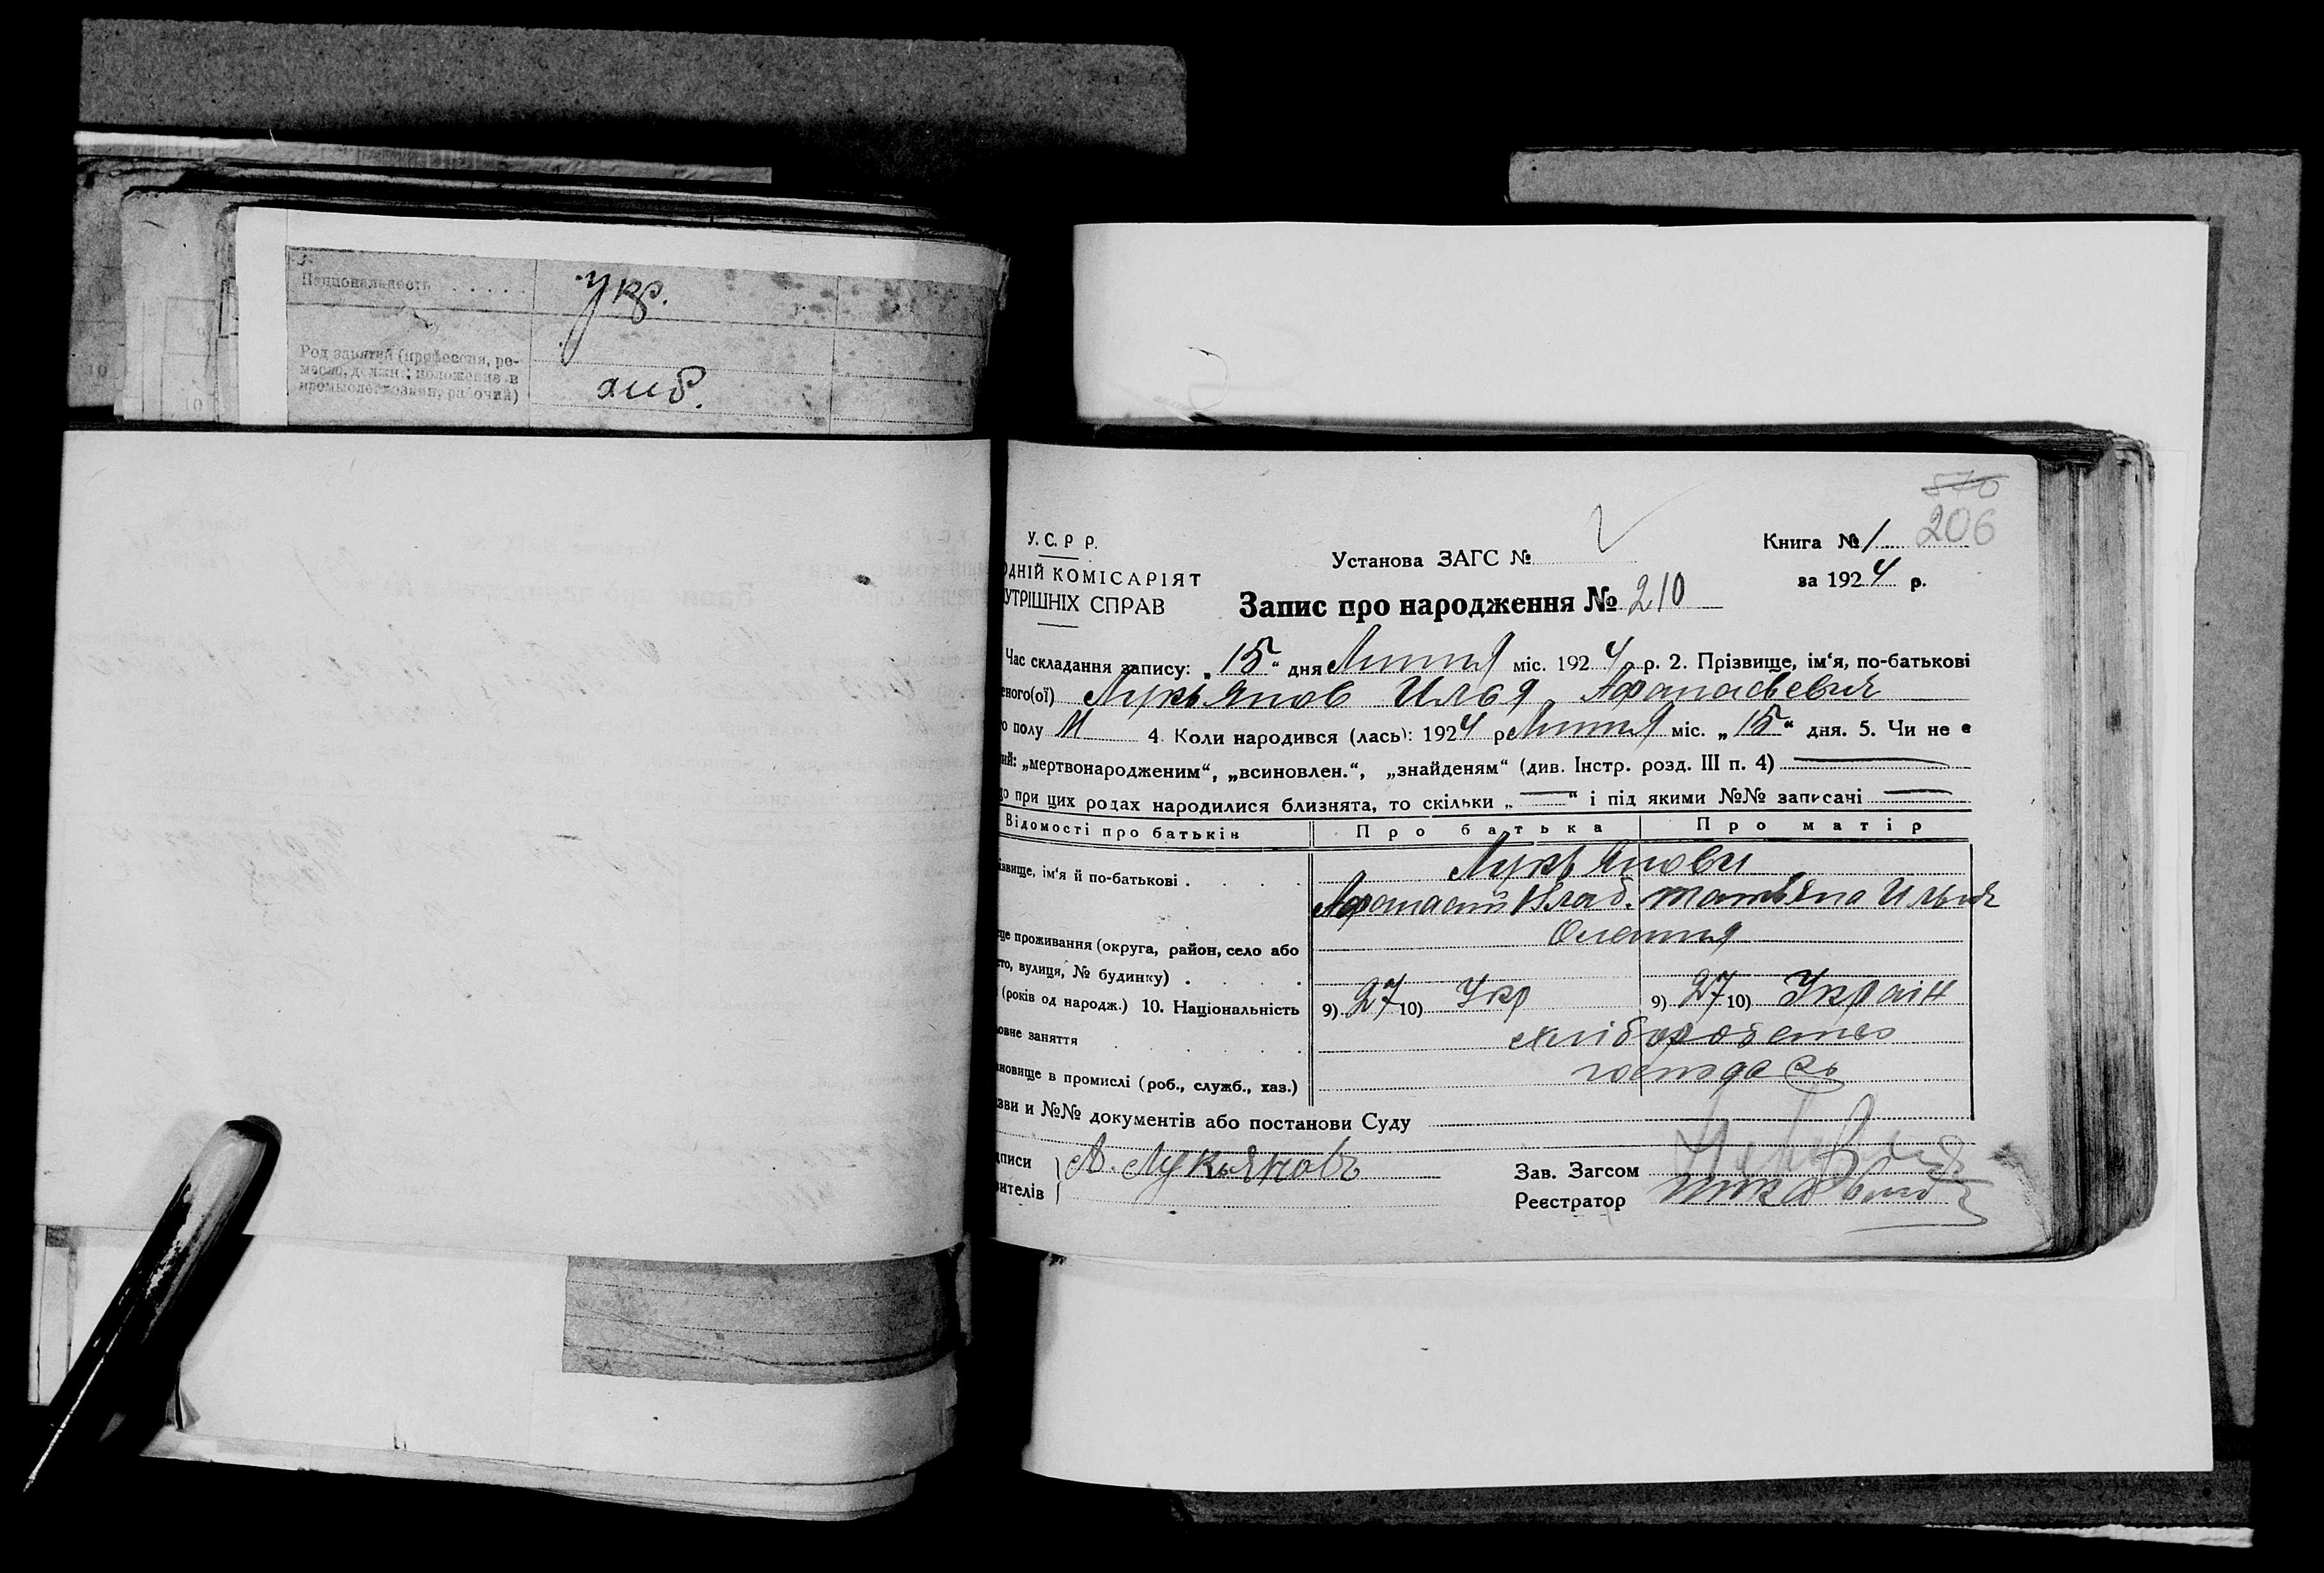 Национальность . . . . .
укр.
Род занятий (профессия, ре-
месло, должн., положение в
промысле: хозяин, рабочий)
хліб.
10
10
570
206
У. С. Р Р.
Книга № 1
Установа ЗАГС №
ОДНІЙ КОМІСАРІЯТ
за 1924 р.
УТРІШНІХ СПРАВ
Запис про народження № 210
Час складання запису: „15“ дня Липня міс. 1924 р. 2. Прізвище, ім‘я, по-батькові
еного(ої) Лукьянов Илья Афанасьевич
о полу М 4. Коли народився (лась): 1924 р Липня міс. „15“ дня. 5. Чи не є
ий: „мертвонародженим“, „всиновлен.“, „знайденям“ (див. Інстр. розд. III п. 4) —
що при цих родах народилися близнята, то скільки „—“ і під якими №№ записані —
Відомості про батьків Про батька Про матір
ізвище, ім‘я й по-батькові . . . .
Лукьянови
Афанасий Влад. Татьяна Ильин
це проживання (округа, район, село або
то, вулиця, № будинку) . . .
(років од народж.) 10. Національність 9) 27 10) Укр 9) 27 10) Україн
овне заняття . . . . .
хліборобство
ановище в промислі (роб., служб., хаз.)
господарь
зви и №№ документів або постанови Суду
дписи
вителів
А. Лукьяновъ
Зав. Загсом
Реєстратор